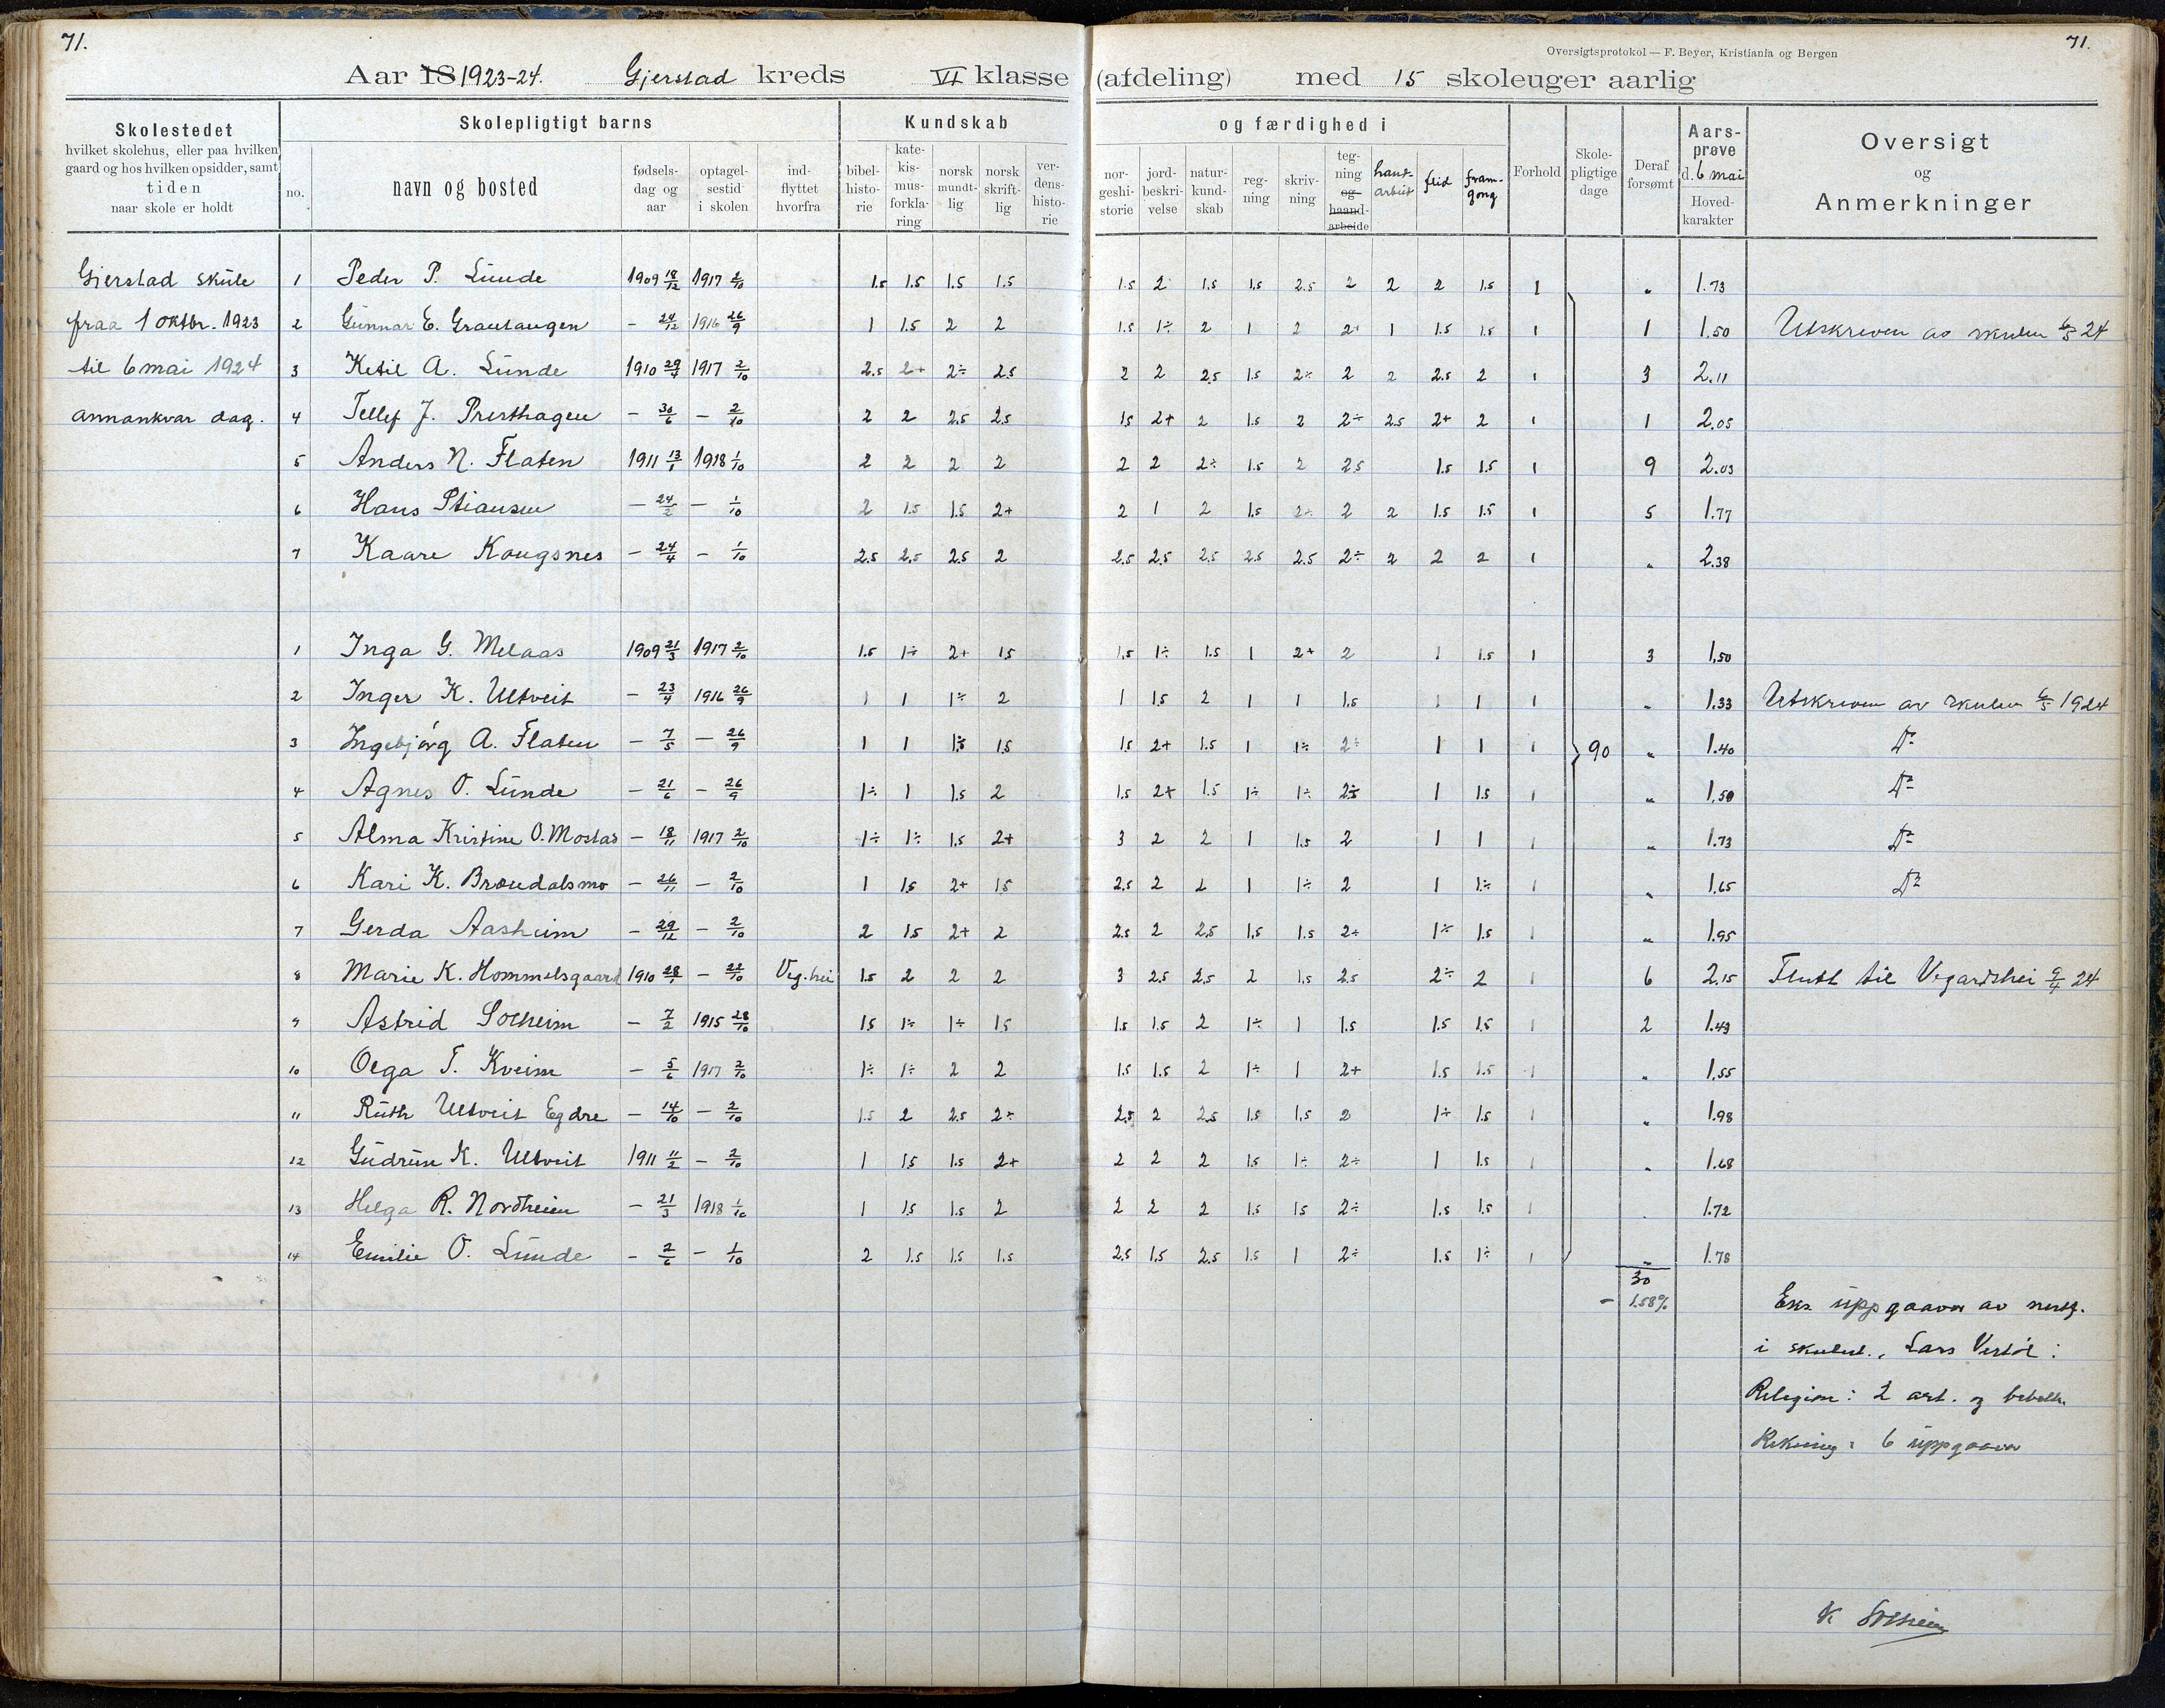 71.
71.
Oversigtsprotokol — F. Beyer, Kristiania og Bergen
Aar 18 1923-24. Gjerstad kreds VI klasse (afdeling) med 15 skoleuger aarlig
Skolestedet
hvilket skolehus, eller paa hvilken
gaard og hos hvilken opsidder, samt
tiden
naar skole er holdt
no.
Skolepligtigt barns
navn og bosted
fødsels-dag og aar
optagel-sestid i skolen
ind-flyttet hvorfra
Kundskab og færdighed i
bibel-histo-rie
kate-kis-mus-forkla-ring
norsk mundt-lig
norsk skrift-lig
ver-dens-histo-rie
nor-geshi-storie
jord-beskri-velse
natur-kund-skab
reg-ning
skriv-ning
teg-ning og haand-arbeide
hand-arbeit
flid
fram-gong
Forhold
Skole-pligtige dage
Deraf forsømt
Aars-prøve d. 6 mai
Hoved-karakter
Oversigt og Anmerkninger
Gjerstad skule
fraa 1 oktbr. 1923
til 6 mai 1924
annankvar dag.
1 Peder P. Lunde 1909 18/12 1917 2/10 1.5 1.5 1.5 1.5 1.5 2 1.5 1.5 2.5 2 2 2 1.5 1 " 1.73
2 Gunnar E. Grautaugen — 24/12 1916 26/9 1 1.5 2 2 1.5 1÷ 2 1 2 2+ 1 1.5 1.5 1 1 1.50 Utskreven av skulen 6/5 24
3 Ketil A. Lunde 1910 29/4 1917 2/10 2.5 2+ 2÷ 2.5 2 2 2.5 1.5 2÷ 2 2 2.5 2 1 3 2.11
4 Tellef J. Presthagen — 30/6 — 2/10 2 2 2.5 2.5 1.5 2+ 2 1.5 2 2÷ 2.5 2+ 2 1 1 2.05
5 Anders N. Flaten 1911 13/1 1918 1/10 2 2 2 2 2 2 2÷ 1.5 2 2.5 1.5 1.5 1 9 2.03
6 Hans Stiansen — 24/2 — 1/10 2 1.5 1.5 2+ 2 1 2 1.5 2÷ 2 2 1.5 1.5 1 5 1.77
7 Kaare Kougsnes — 24/4 — 1/10 2.5 2.5 2.5 2 2.5 2.5 2.5 2.5 2.5 2÷ 2 2 2 1 " 2.38
1 Inga G. Melaas 1909 21/3 1917 2/10 1.5 1÷ 2+ 1.5 1.5 1÷ 1.5 1 2+ 2 1 1.5 1 3 1.50
2 Inger K. Ultveit — 23/4 1916 26/9 1 1 1÷ 2 1 1.5 2 1 1 1.5 1 1 1 " 1.33 Utskreven av skulen 6/5 1924
3 Ingebjørg A. Flaten — 7/5 — 26/9 1 1 1.5 1.5 1.5 2+ 1.5 1 1÷ 2÷ 1 1 1 90 " 1.40 Do
4 Agnes O. Lunde — 21/6 — 26/9 1÷ 1 1.5 2 1.5 2+ 1.5 1÷ 1÷ 2.5 1 1.5 1 " 1.50 Do
5 Alma Kristine O. Mostad — 18/11 1917 2/10 1÷ 1÷ 1.5 2+ 3 2 2 1 1.5 2 1 1 1 " 1.73 Do
6 Kari K. Brøndalsmo — 26/11 — 2/10 1 1.5 2+ 1.5 2.5 2 2 1 1÷ 2 1 1÷ 1 " 1.65 Do
7 Gerda Aasheim — 29/12 — 2/10 2 1.5 2+ 2 2.5 2 2.5 1.5 1.5 2÷ 1÷ 1.5 1 " 1.95
8 Marie K. Hommelsgaard 1910 28/1 — 22/10 Veg.hei 1.5 2 2 2 3 2.5 2.5 2 1.5 2.5 2÷ 2 1 6 2.15 Flutt til Vegardshei 9/4 24
9 Astrid Solheim — 7/2 1915 28/10 1.5 1÷ 1÷ 1.5 1.5 1.5 2 1÷ 1 1.5 1.5 1.5 1 2 1.43
10 Olga T. Kveim — 5/6 1917 2/10 1÷ 1÷ 2 2 1.5 1.5 2 1÷ 1 2+ 1.5 1.5 1 " 1.55
11 Ruth Ultveit Egdre — 14/10 — 2/10 1.5 2 2.5 2÷ 2.5 2 2.5 1.5 1.5 2 1÷ 1.5 1 " 1.98
12 Gudrun K. Ultveit 1911 11/2 — 2/10 1 1.5 1.5 2+ 2 2 2 1.5 1÷ 2÷ 1 1.5 1 " 1.68
13 Helga R. Nordheim — 21/3 1918 1/10 1 1.5 1.5 2 2 2 2 1.5 1.5 2÷ 1.5 1.5 1 " 1.72
14 Emilie O. Lunde — 2/6 — 1/10 2 1.5 1.5 1.5 2.5 1.5 2.5 1.5 1 2÷ 1.5 1÷ 1 " 1.78
30
— 1.58%
Eks. uppgaavor av
i skulest., Lars :
Religion: 2 art. og
Rekning: 6 uppgaavor
K Solheim